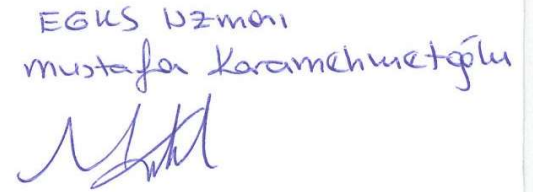 EGKS Uzmanı
Mustafa Karamehmetoğlu